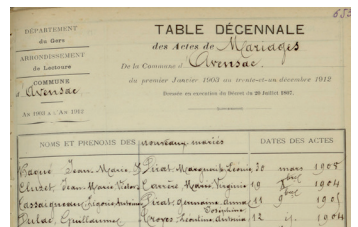 652
DÉPARTEMENT
du Gers
ARRONDISSEMENT
de Lectoure
COMMUNE
d'Avensac
AN 1903 à AN 1912
TABLE DÉCENNALE
des Actes de Mariages
De la Commune d'Avensac
du premier Janvier 1903 au trente-et-un décembre 1912
Dressée en exécution du Décret du 20 Juillet 1807.
NOMS ET PRÉNOMS DES nouveaux mariés
DATES DES ACTES
Jean Marie 30 mars 1908
Cluzet, Jean Marie Victor Carrère Marie Virginie 19 9bre 1904
Cassaigneau Germaine Anna 11 1905
Joséphine
Dulac, Guillaume Antonia 12 1904